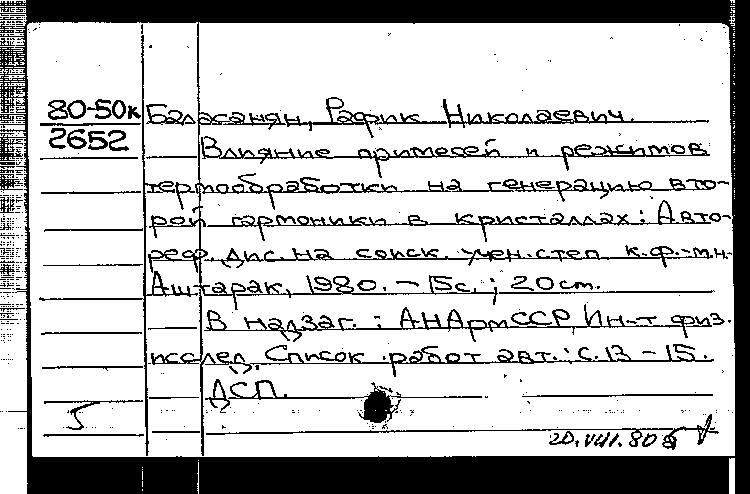 80-50к
2652
Баласанян, Рафик Николаевич.
Влияние примесей и режимов
термообработки на генерацию вто-
рой гармоники в кристаллах: Авто-
реф. дис. на соиск. учен. степ. к.ф.-м.н.
Аштарак, 1980. - 15с.; 20 cm.
В надзаг.: АН АрмССР, Ин-т физ.
исслед. Список работ авт.: с. 13 - 15.
ДСП.
5
20.VIII.80